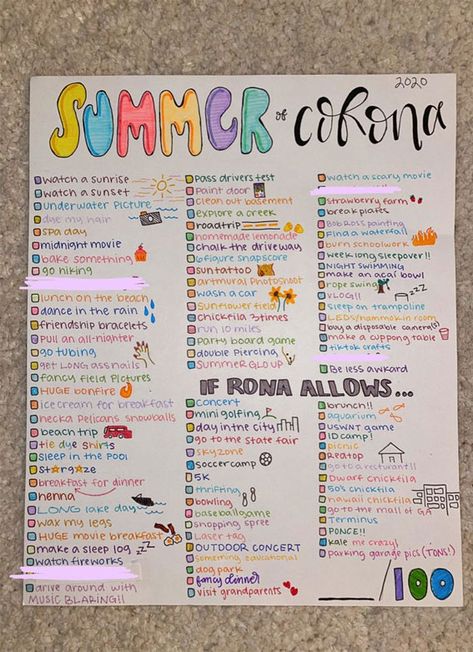 2020
SUMMER of corona
watch a sunrise
watch a sunset
underwater picture
dye my hair
spa day
midnight movie
bake something
go hiking
lunch on the beach
dance in the rain
friendship bracelets
pull an all-nighter
go tubing
get LONG ass nails
fancy field pictures
HUGE bonfire
ice cream for breakfast
hecka Pelicans snowballs
beach trip
tie dye shirts
sleep in the pool
breakfast for dinner
henna
LONG lake day
wax my legs
HUGE movie breakfast
make a sleep log zzz
watch fireworks
drive around with
MUSIC BLARING!!
pass drivers test
paint door
clean out basement
explore a creek
roadtrip
homemade lemonade
chalk the driveway
6figure snapscore
sun tattoo
artmural photoshoot
wash a car
sunflower field
chickfila 3times
run 10 miles
party board game
double piercing
summer glo up
watch a scary movie
strawberry farm
break plates
Bob Ross painting
find a waterfall
burn schoolwork
week long sleepover!!
NIGHT SWIMMING
make an acai bowl
rope swing
VLOG!! zzz
sleep on trampoline
LEDS/hammock in room
buy a disposable camera(s)
make a cup pong table
tiktok crafts
Be less awkard
IF RONA ALLOWS...
concert
mini golfing
day in the city
go to the state fair
skyzone
soccer camp
5K
thrifting
bowling
baseball game
shopping spree
Laser tag
OUTDOOR CONCERT
something educational
dog park
fancy dinner
visit grandparents
brunch!!
aquarium
USWNT game
ID camp!
picnic
Reatop
Dwarf chickfila
50's chickfila
hawaii chickfila
go to the mall of GA
Terminus
PONCE!!
kale me crazy!
parking garage pics (TONS!)
/100